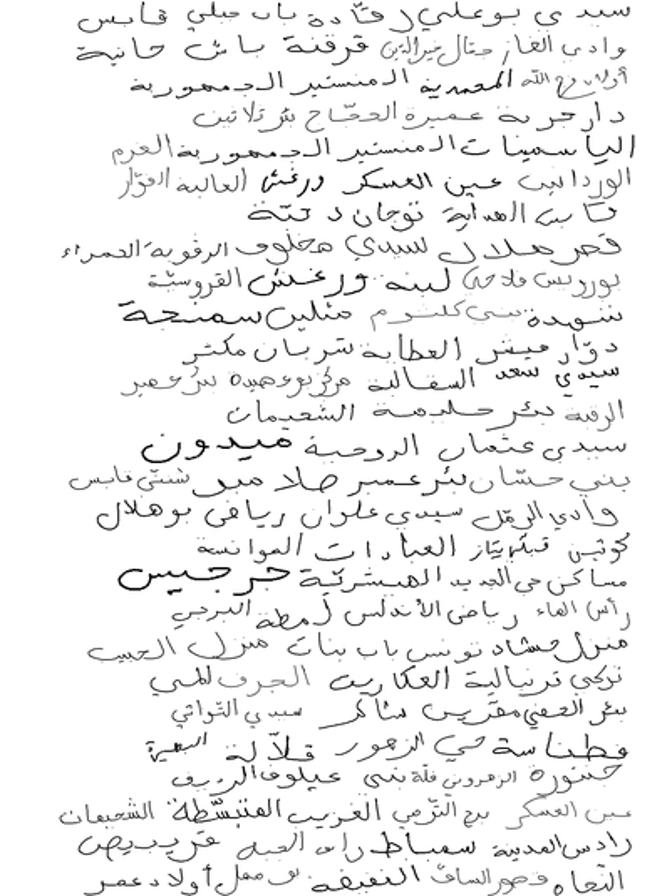 سيدي بوعلي رقّادة باب جبلي قابس
وادي الغار جمّال خيرالدين قرقنة باش حانبة
أولاد فرج الله المحمدية المنستير الجمهورية
دار جربة عميرة الحجّاج بئر ثلاثين
الياسمينات المنستير الجمهورية العزم
الوردانين عين العسكر ورغش العالية الفوّار
الهداية توجان دخنة
قصرهلال لسيدي مخلوف الرقوبة الحمراء
بورويس فلاحي لبنه ورغش القروسيّة
شهدة بني كلثوم منلين سمنجة
دوّار ميش العطاية شربان مكثر
سيدي سعد السقالبة مركز بوعصيدة بئر عمير
الرقبة بئر حليمة الشعيمات
سيدي عثمان الروحية ميدون
بني حسّان بئر عمير صلامبو شنني قابس
وادي الرمل سيدي علوان رياض بوهلال
كوتين العبادات الموانسة
مساكن حي الجديد الهيشريّة جرجيس
رأس الماء رياض الأندلس لمطة البرجي
منزل حشاد تونس باب بنات منزل الحبيب
تركي قرنبالية العكاريت الجرف
بئر الحفي مقرين شاكر سيدي التواتي
فطناسة حي الزهور قلاّلة
خنثورة الزهروني قلة بني غيلوف الريف
عين العسكر برج التّرمي الغريب المنبسّطة الشعيمات
رادس المدينة سمباط راس العين
النجاه قصور الساف النفيضة أولاد عمر